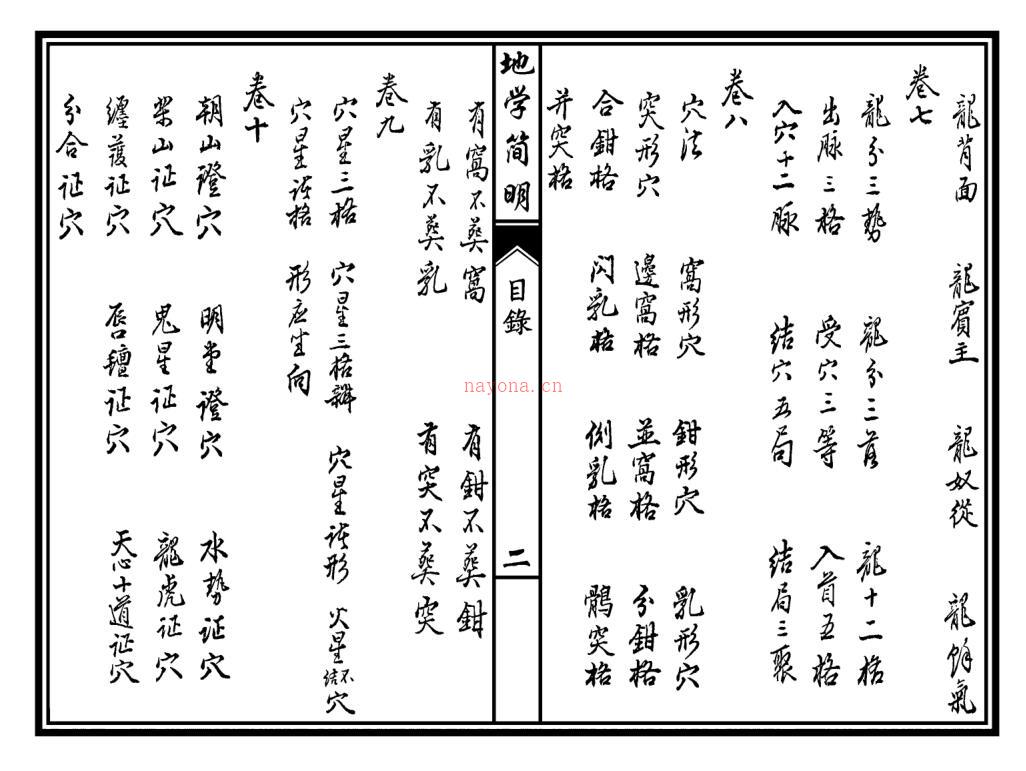 龍背面 龍賓主 龍奴從 龍餘氣
卷七
龍分三勢 龍分三落 龍十二格
出脉三格 受穴三等 入首五格
入穴十二脈 結穴五局 結局三聚
卷八
穴法 窩形穴 鉗形穴 乳形穴
突形穴 邊窩格 並窩格 分鉗格
合鉗格 闪乳格 側乳格 鶻突格
并突格
地学简明
目錄
二
有窩不葬窩 有鉗不葬鉗
有乳不葬乳 有突不葬突
卷九
穴星三格 穴星三格辨 穴星諸形 火星不結穴
穴星諸格 形应坐向
卷十
朝山證穴 明堂證穴 水势证穴
樂山证穴 鬼星证穴 龍虎证穴
纏護证穴 唇氊证穴 天心十道证穴
分合证穴
nayona.cn